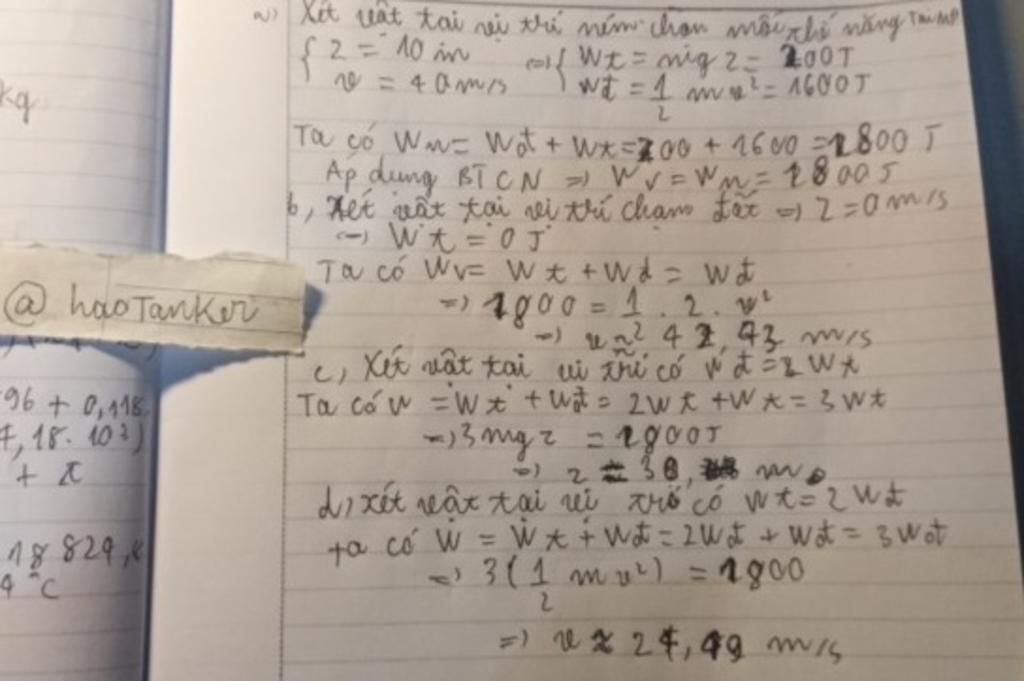 kg
96 + 0,118
7, 18. 10³)
+ x
18 824,
4 °C
@ haoTanker
a) Xét vật tại vị trí ném chọn mốc thế năng Tại MĐ
{ z = 10 m ⇒ { Wt = mgz = 200J
v = 40m/s Wđ = 1/2 mv² = 1600J
Ta có Wn = Wđ + Wt = 200 + 1600 = 1800 J
Áp dụng BTCN ⇒ Wv = Wn = 1800J
b, Xét vật tại vị trí chạm đất ⇒ z = 0 m/s
⇒ Wt = 0 J
Ta có Wv = Wt + Wđ = Wđ
⇒ 1800 = 1/2 . 2 . v²
⇒ v ≈ 42,43 m/s
c, Xét vật tại vị trí có Wđ = 2 Wt
Ta có W = Wt + Wđ = 2Wt + Wt = 3Wt
⇒ 3mgz = 1800J
⇒ z = 30, m
d, xét vật tại vị trí có Wt = 2Wđ
ta có W = Wt + Wđ = 2Wđ + Wđ = 3Wđ
⇒ 3(1/2 mv²) = 1800
⇒ v ≈ 24,49 m/s